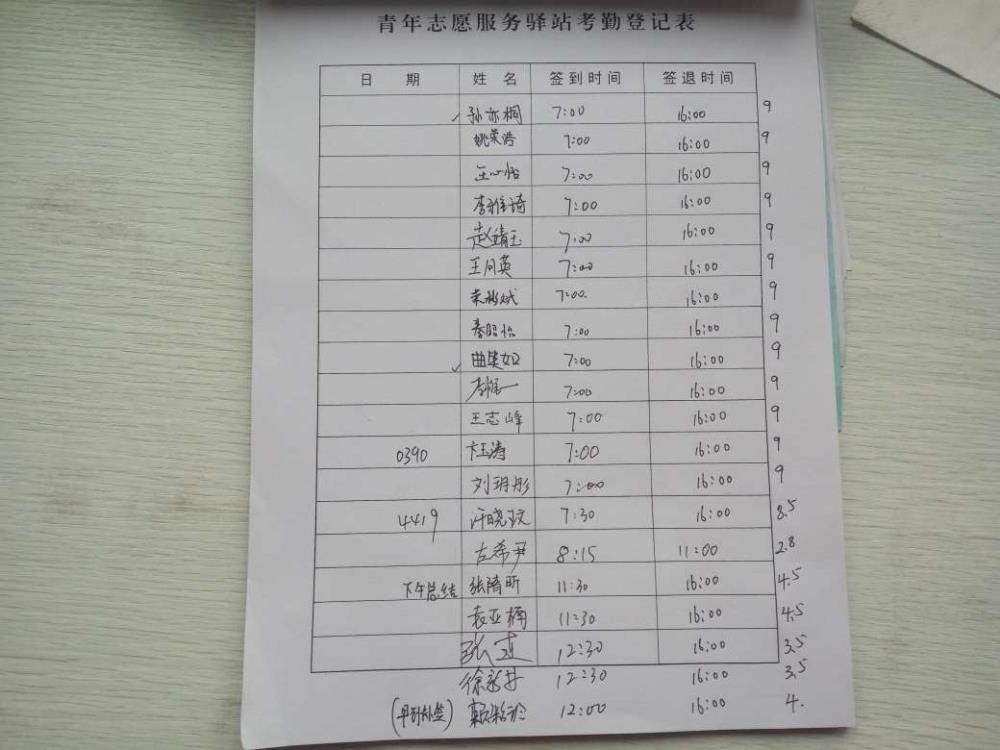 青年志愿服务驿站考勤登记表
日 期 姓 名 签到时间 签退时间
孙亦桐 7:00 16:00 9
姚荣浩 7:00 16:00 9
王心怡 7:00 16:00 9
李雅琦 7:00 16:00 9
赵靖玉 7:00 16:00 9
王同英 7:00 16:00 9
7:00 16:00 9
秦昭怡 7:00 16:00 9
曲奕如 7:00 16:00 9
李恒一 7:00 16:00 9
王志峰 7:00 16:00 9
0390 卞玉涛 7:00 16:00 9
刘玥彤 7:00 16:00 9
4419 汪晓玟 7:30 16:00 8.5
左希尹 8:15 11:00 2.8
下午总结 张倩昕 11:30 16:00 4.5
袁亚楠 11:30 16:00 4.5
张 12:30 16:00 3.5
徐 12:30 16:00 3.5
12:00 16:00 4.